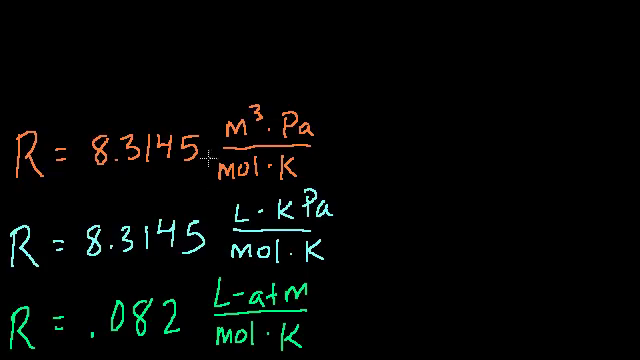 R = 8.3145 m³·Pa / mol·K
R = 8.3145 L·KPa / mol·K
R = .082 L-atm / mol·K